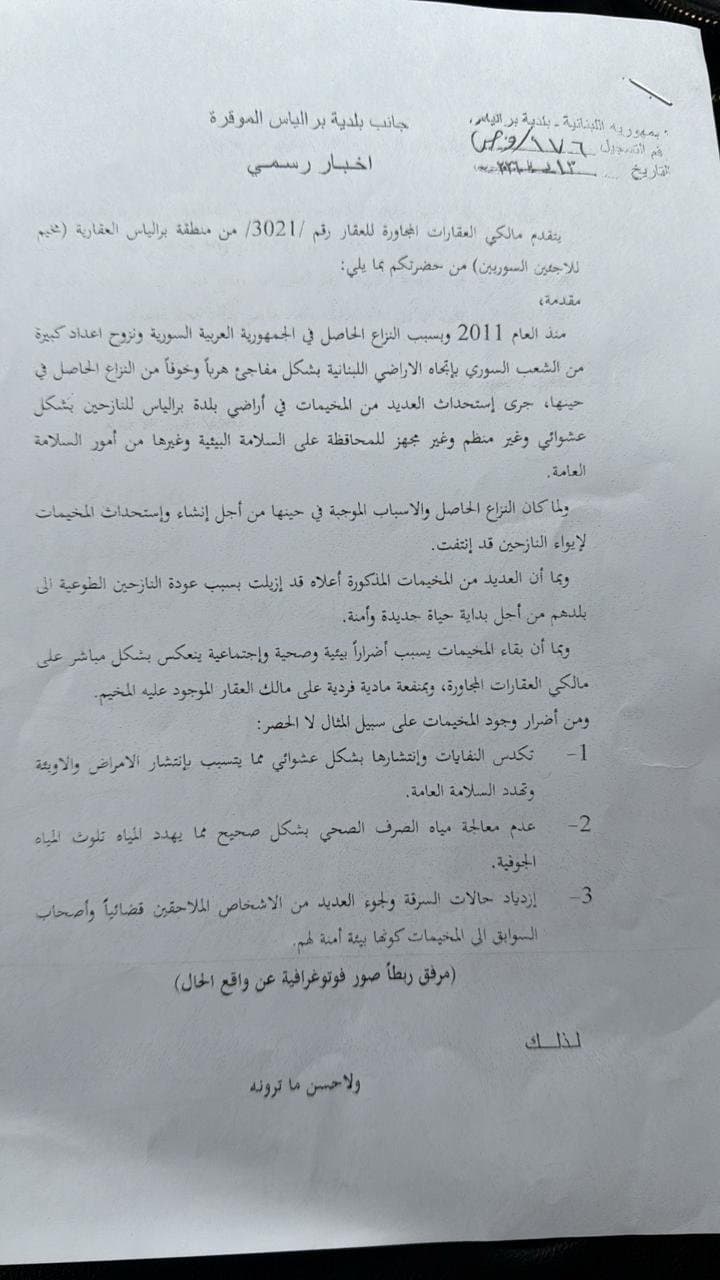 الجمهورية اللبنانية - بلدية بر الياس
رقم التسجيل ١٧٦/وص
التاريخ
جانب بلدية بر الياس الموقرة
اخبار رسمي
يتقدم مالكي العقارات المجاورة للعقار رقم /3021/ من منطقة برالياس العقارية (مخيم
للاجئين السوريين) من حضرتكم بما يلي:
مقدمة،
منذ العام 2011 وبسبب النزاع الحاصل في الجمهورية العربية السورية ونزوح اعداد كبيرة
من الشعب السوري بإتجاه الاراضي اللبنانية بشكل مفاجئ هرباً وخوفاً من النزاع الحاصل في
حينها، جرى إستحداث العديد من المخيمات في أراضي بلدة برالياس للنازحين بشكل
عشوائي وغير منظم وغير مجهز للمحافظة على السلامة البيئية وغيرها من أمور السلامة
العامة.
ولما كان النزاع الحاصل والاسباب الموجبة في حينها من أجل إنشاء وإستحداث المخيمات
لإيواء النازحين قد إنتفت.
وبما أن العديد من المخيمات المذكورة أعلاه قد إزيلت بسبب عودة النازحين الطوعية الى
بلدهم من أجل بداية حياة جديدة وأمنة.
وبما أن بقاء المخيمات يسبب أضراراً بيئية وصحية وإجتماعية ينعكس بشكل مباشر على
مالكي العقارات المجاورة، وبمنفعة مادية فردية على مالك العقار الموجود عليه المخيم.
ومن أضرار وجود المخيمات على سبيل المثال لا الحصر:
1- تكدس النفايات وإنتشارها بشكل عشوائي مما يتسبب بإنتشار الامراض والاوبئة
وتهدد السلامة العامة.
2- عدم معالجة مياه الصرف الصحي بشكل صحيح مما يهدد المياه تلوث المياه
الجوفية.
3- إزدياد حالات السرقة ولجوء العديد من الاشخاص الملاحقين قضائياً وأصحاب
السوابق الى المخيمات كونها بيئة أمنة لهم.
(مرفق ربطاً صور فوتوغرافية عن واقع الحال)
لذلـــك
ولاحسن ما ترونه